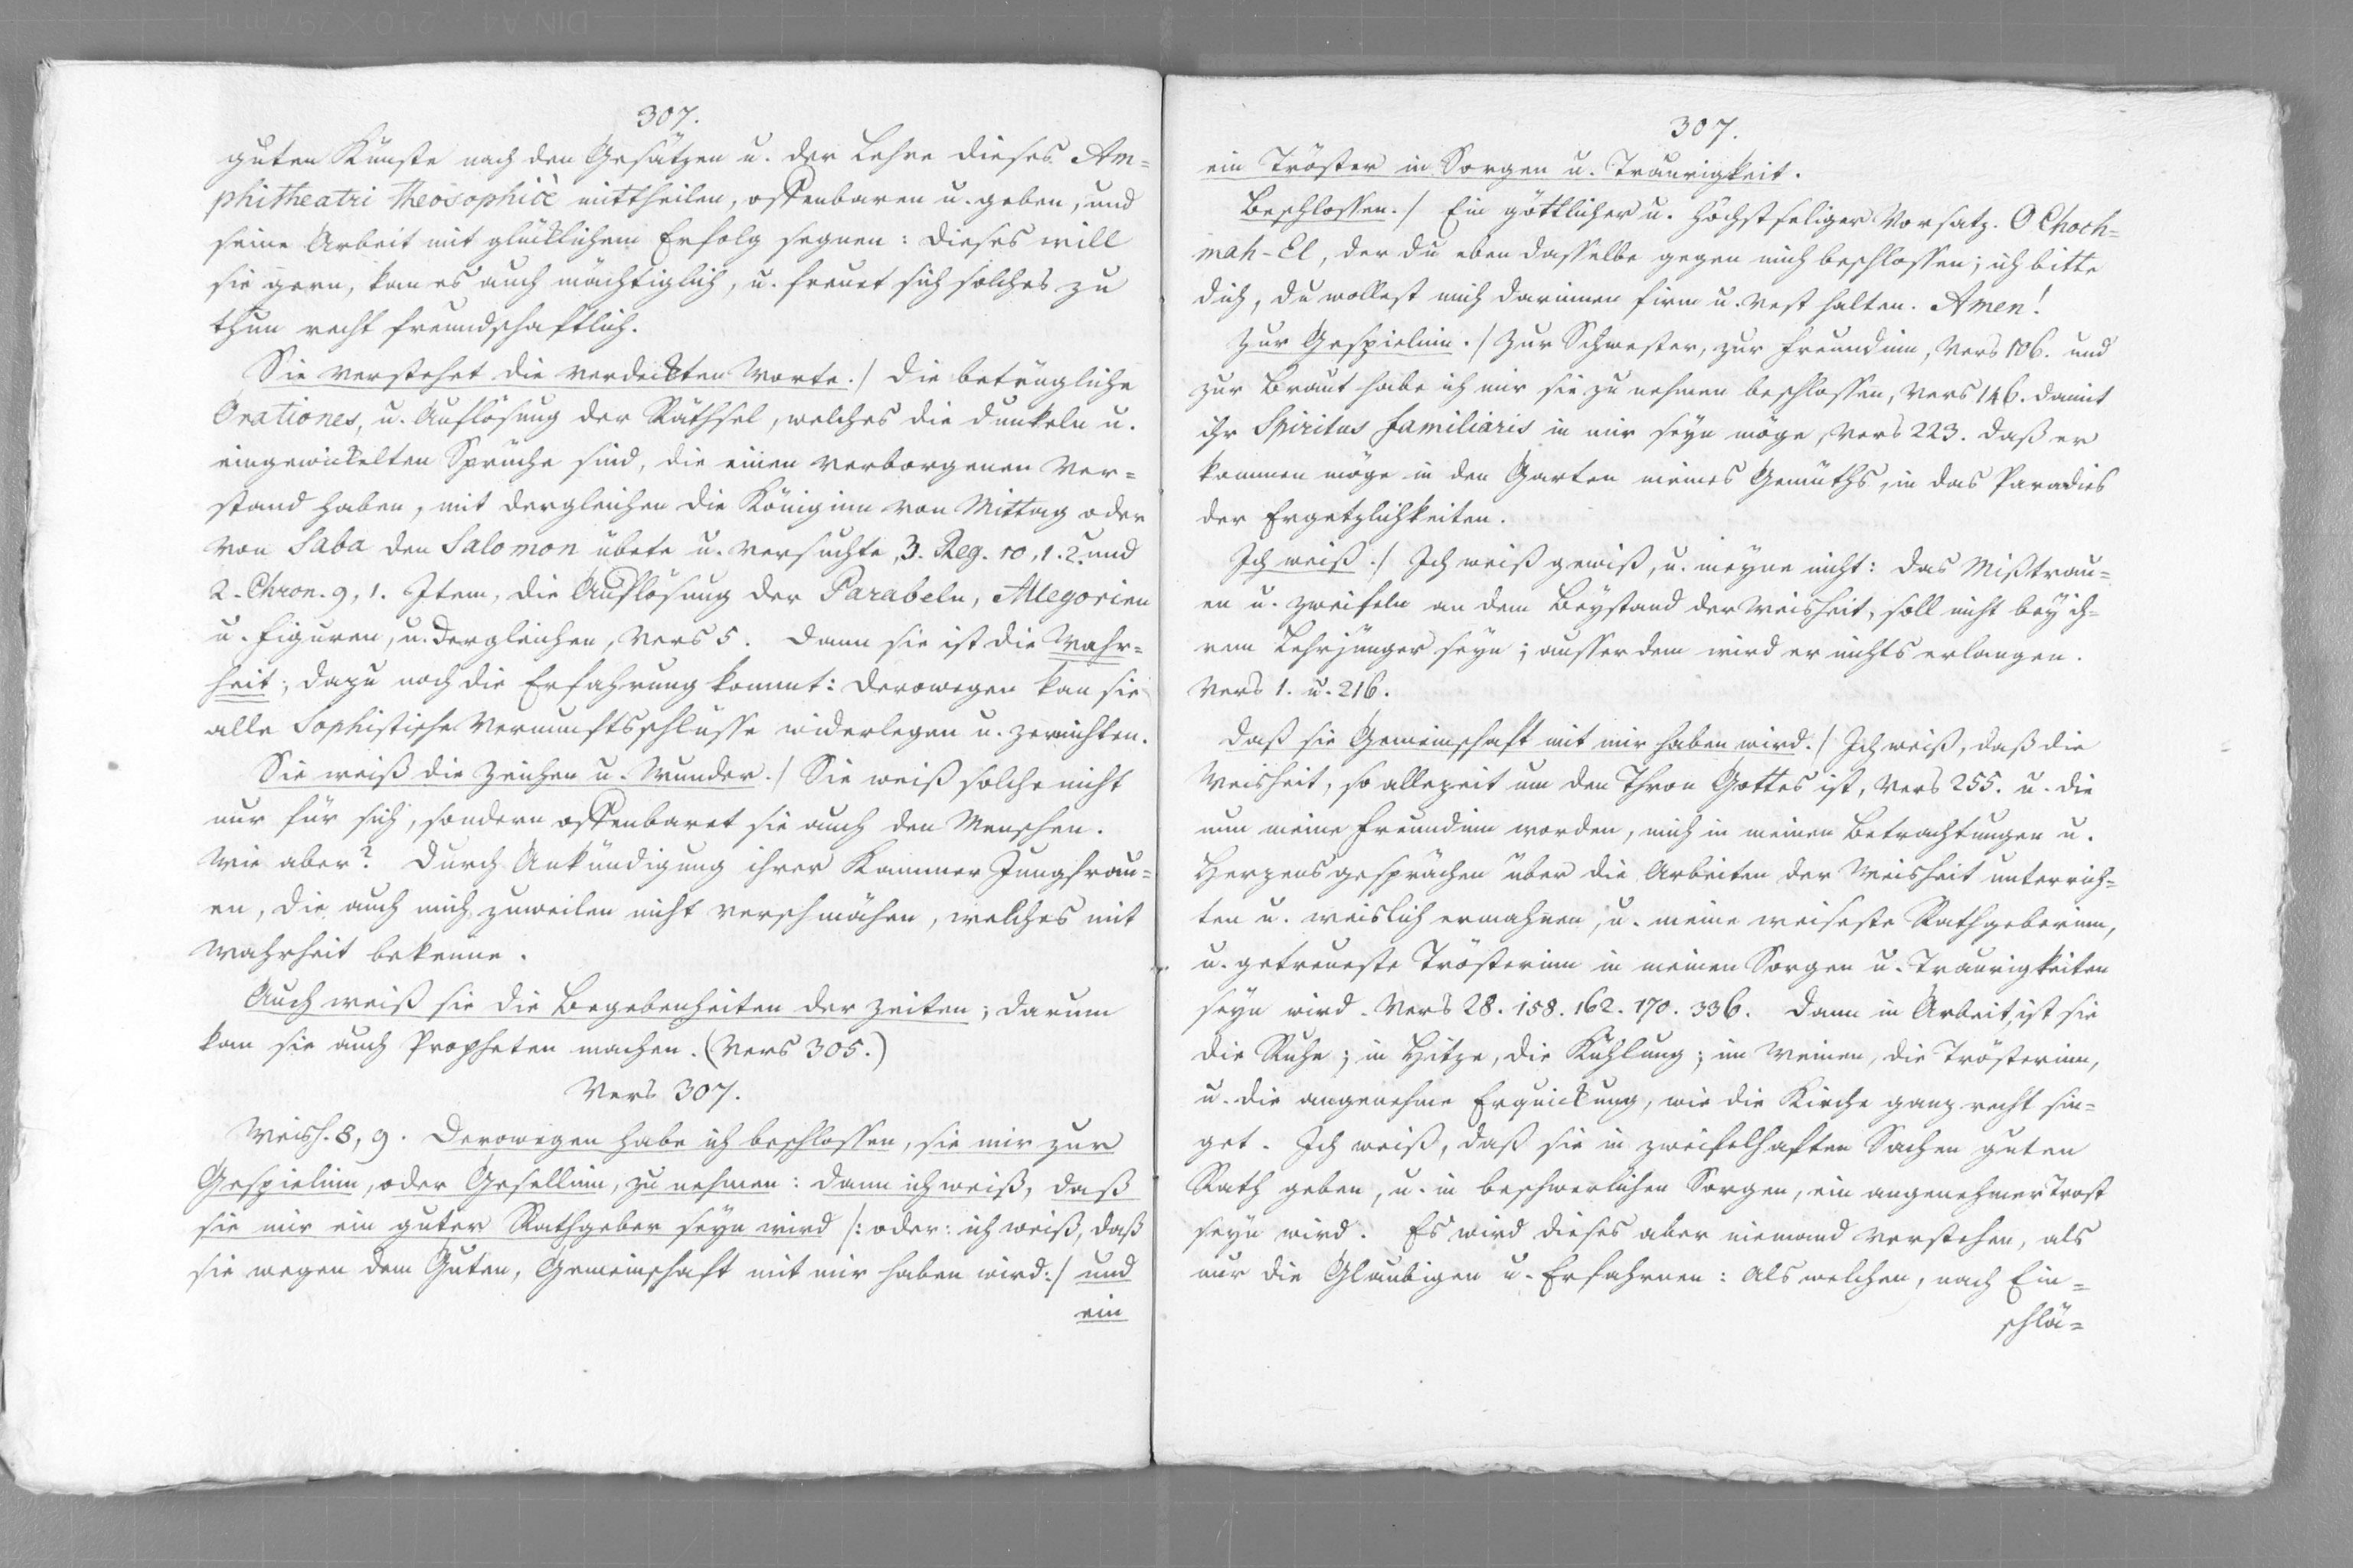 307.
guten Künste nach den Gesätzen u. der Lehre dieses Am=
phitheatri theosophicè mittheilen, offenbaren u. geben, und
seine Arbeit mit glücklichem Erfolg segnen: dieses will
sie gern, kan es auch mächtiglich, u. freuet sich solches zu
thun recht freundschaftlich.
Sie verstehet die verdeckten Worte./ Die betrügliche
Orationes, u. Auflösung der Räthsel, welches die dunkeln u.
eingewickelten Sprüche sind, die einen verborgenen Ver=
stand haben, mit dergleichen die Königinn von Mittag oder
von Saba den Salomon übete u. versuchte, 3. Reg. 10, 1. 2. und
2. Chron. 9, 1. Item, die Auflösung der Parabeln, Allegorien
u. Figuren, u. dergleichen, Vers 5. Dann sie ist die Wahr=
heit; dazu noch die Erfahrung kommt: derowegen kan sie
alle Sophistische Vernunftsschlüsse widerlegen u. zernichten.
Sie weiß die Zeichen u. Wunder./ Sie weiß solche nicht
nur für sich, sondern offenbaret sie auch den Menschen.
Wie aber? Durch Ankündigung ihrer Kammer Jungfrau=
en, die auch mich zuweilen nicht verschmähen, welches mit
Wahrheit bekenne.
Auch weiß sie die Begebenheiten der Zeiten; darum
kan sie auch Propheten machen. (Vers 305.)
Vers 307.
Weish. 8, 9. Derowegen habe ich beschlossen, sie mir zur
Gespielinn, oder Gesellinn, zu nehmen: dann ich weiß, daß
sie mir ein guter Rathgeber seyn wird /: oder: ich weiß, daß
sie wegen dem Guten, Gemeinschaft mit mir haben wird:/ und
ein
307.
ein Tröster in Sorgen u. Traurigkeit.
Beschlossen./ Ein göttlicher u. höchst seliger Vorsatz. O Choch=
mah-El, der du eben dasselbe gegen mich beschlossen; ich bitte
dich, du wollest mich darinnen firm u. vest halten. Amen!
Zur Gespielinn./ Zur Schwester, zur Freundinn, Vers 106. und
zur Braut habe ich mir sie zu nehmen beschlossen, Vers 146. damit
ihr Spiritus familiaris in mir seyn möge, Vers 223. daß er
kommen möge in den Garten meines Gemüths, in das Paradies
der Ergetzlichkeiten.
Ich weiß./ Ich weiß gewiß, u. meyne nicht: das Mißtrau=
en u. zweifeln an dem Beystand der Weisheit, soll nicht bey ih=
rem Lehrjünger seyn; ausser dem wird er nichts erlangen.
Vers 1. u. 216.
Daß sie Gemeinschaft mit mir haben wird./ Ich weiß, daß die
Weisheit, so allezeit um den Thron Gottes ist, Vers 255. u. die
nun meine Freundinn worden, mich in meinen Betrachtungen u.
Herzensgesprächen über die Arbeiten der Weisheit unterrich=
ten u. weislich ermahnen, u. meine weiseste Rathgeberinn,
u. getreueste Trösterinn in meinen Sorgen u. Traurigkeiten
seyn wird. Vers 28. 158. 162. 170. 336. Dann in Arbeit, ist sie
die Ruhe; in Hitze, die Kühlung; im Weinen, die Trösterinn,
u. die angenehme Erquickung, wie die Kirche ganz recht sin=
get. Ich weiß, daß sie in zweifelhaften Sachen guten
Rath geben, u. in beschwerlichen Sorgen, ein angenehmer Trost
seyn wird. Es wird dieses aber niemand verstehen, als
nur die Glaubigen u. Erfahrnen: Als welchen, nach Ein=
schlä=